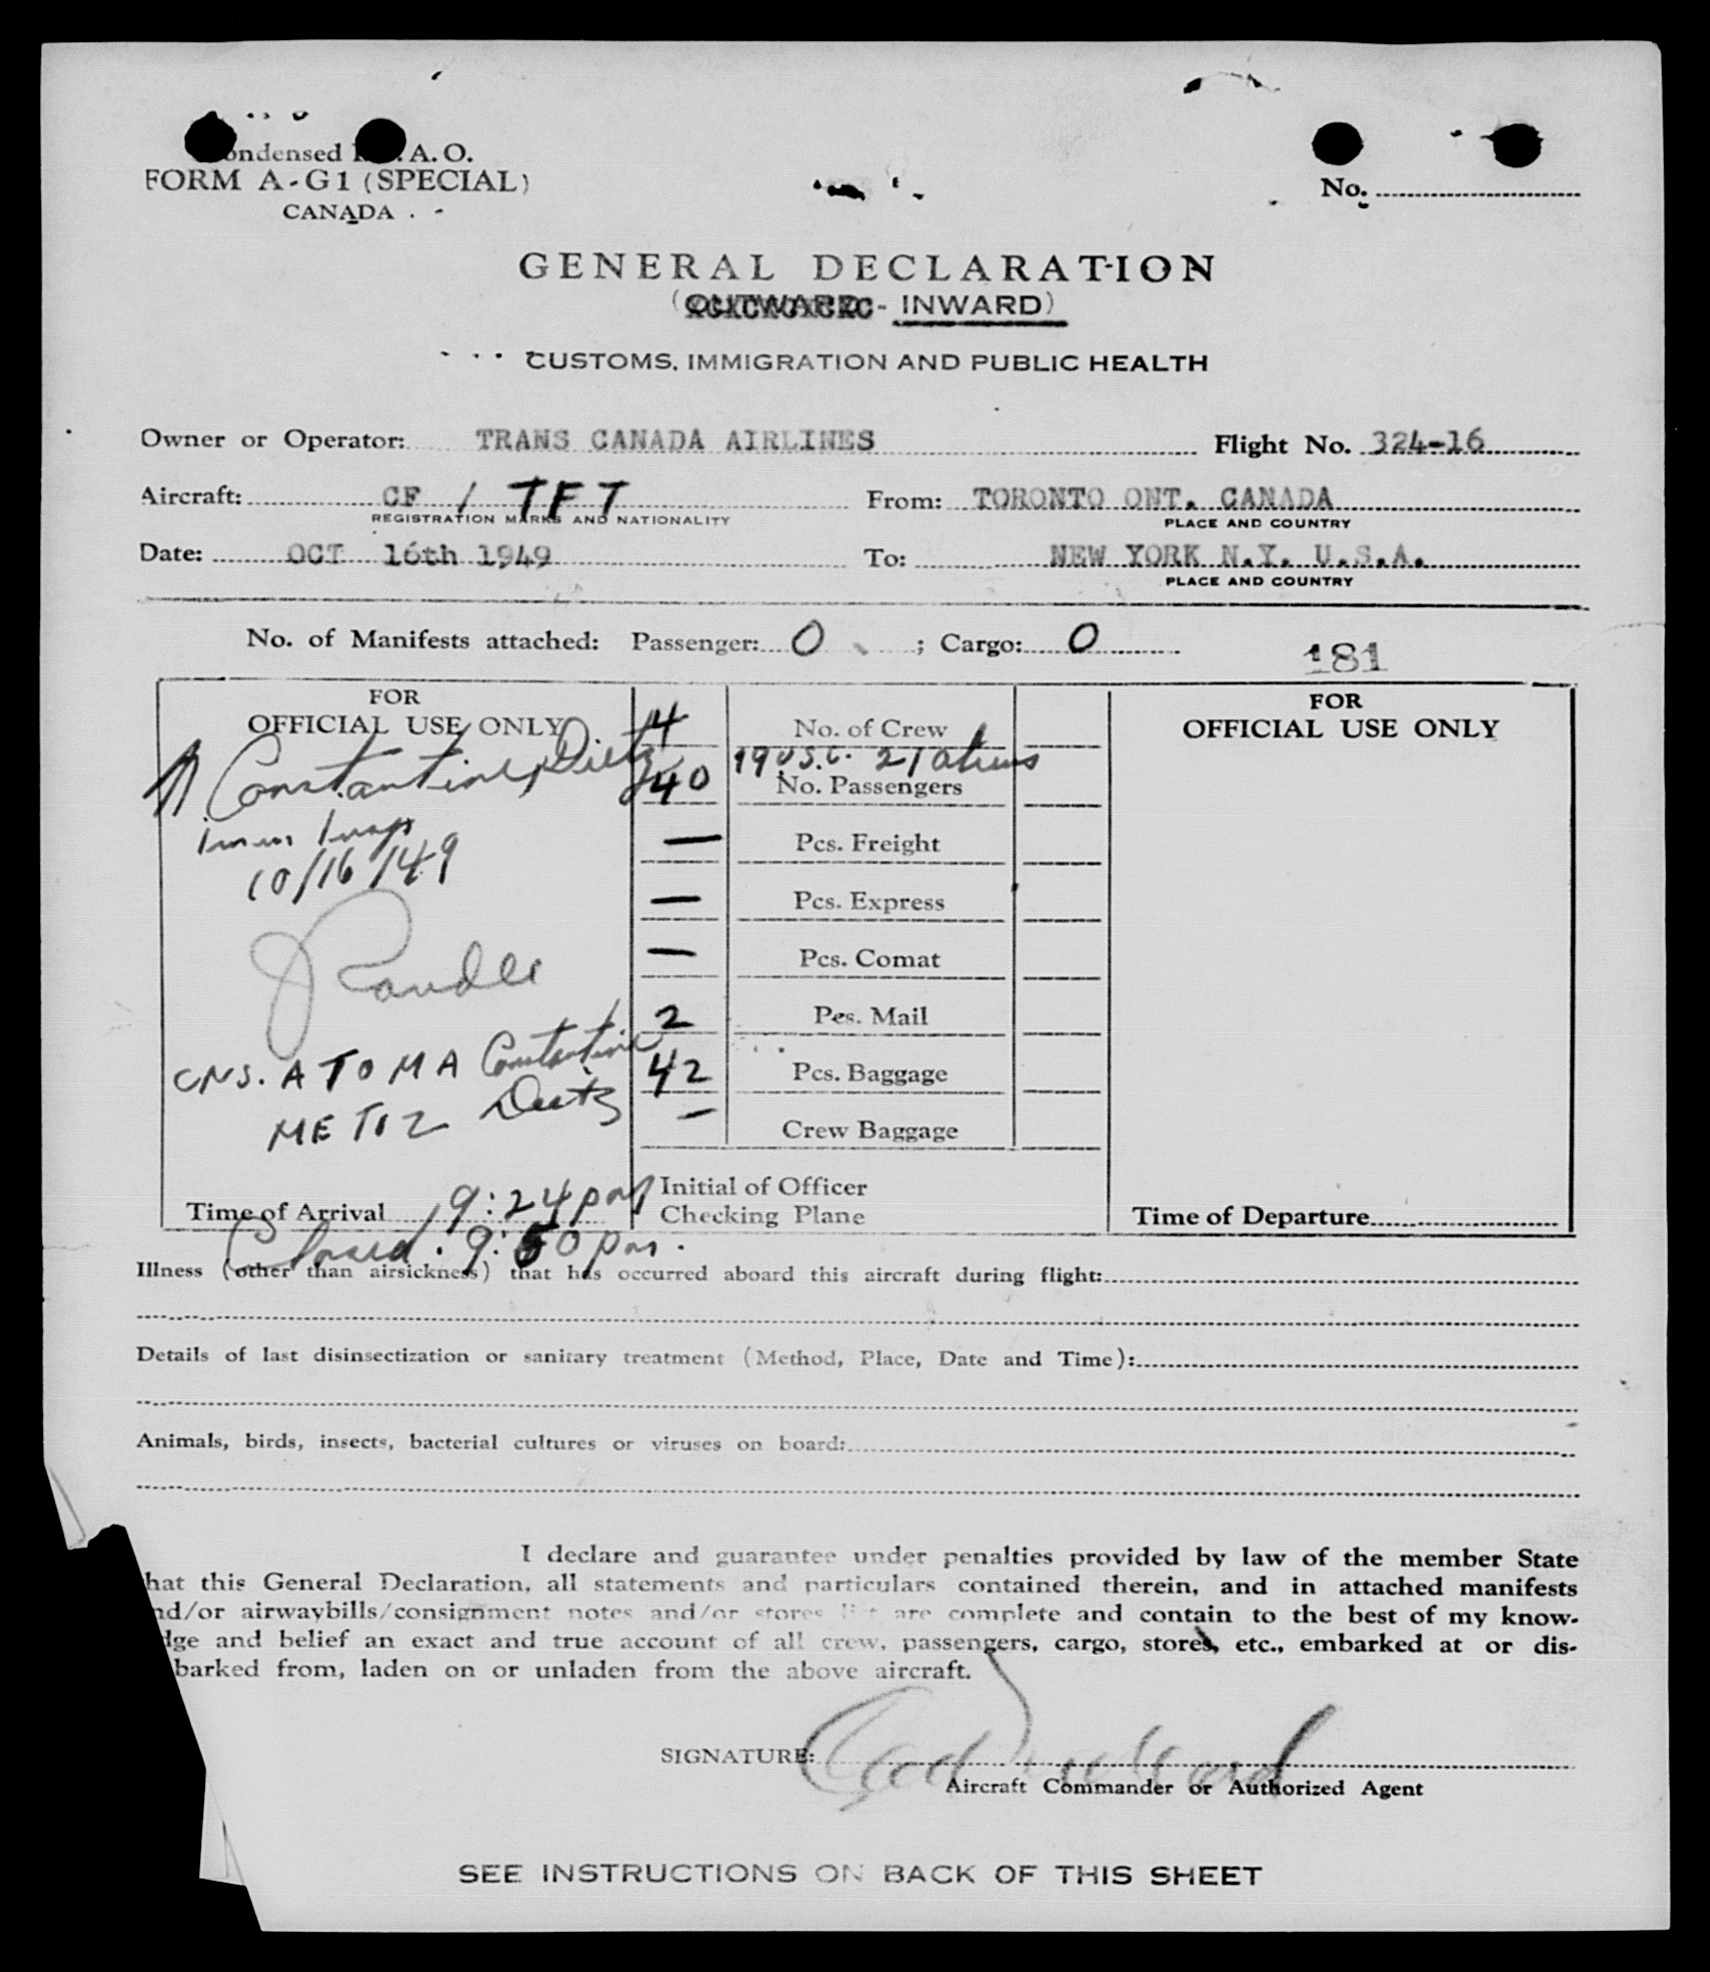 ondensed I. A. O.
FORM A-G1 (SPECIAL)
CANADA
No.
GENERAL DECLARATION
(OUTWARD - INWARD)
CUSTOMS, IMMIGRATION AND PUBLIC HEALTH
Owner or Operator: TRANS CANADA AIRLINES Flight No. 324-16
Aircraft: CF / TFT From: TORONTO ONT. CANADA
REGISTRATION MARKS AND NATIONALITY PLACE AND COUNTRY
Date: OCT 16th 1949 To: NEW YORK N.Y. U.S.A.
PLACE AND COUNTRY
No. of Manifests attached: Passenger: 0 ; Cargo: 0
181
FOR
OFFICIAL USE ONLY
Constantine, Dietz
10/16/49
CNS. A TO M A Constantine
ME TO Z Dietz
Time of Arrival 9:24 pm
Closed. 9:50 pm.
4 No. of Crew
19 U.S.C. 21 aliens
40 No. Passengers
— Pcs. Freight
— Pcs. Express
— Pcs. Comat
2 Pcs. Mail
42 Pcs. Baggage
— Crew Baggage
Initial of Officer
Checking Plane
FOR
OFFICIAL USE ONLY
Time of Departure
Illness (other than airsickness) that has occurred aboard this aircraft during flight:
Details of last disinsectization or sanitary treatment (Method, Place, Date and Time):
Animals, birds, insects, bacterial cultures or viruses on board:
I declare and guarantee under penalties provided by law of the member State
hat this General Declaration, all statements and particulars contained therein, and in attached manifests
nd/or airwaybills/consignment notes and/or stores list are complete and contain to the best of my know-
dge and belief an exact and true account of all crew, passengers, cargo, stores, etc., embarked at or dis-
barked from, laden on or unladen from the above aircraft.
SIGNATURE:
Aircraft Commander or Authorized Agent
SEE INSTRUCTIONS ON BACK OF THIS SHEET